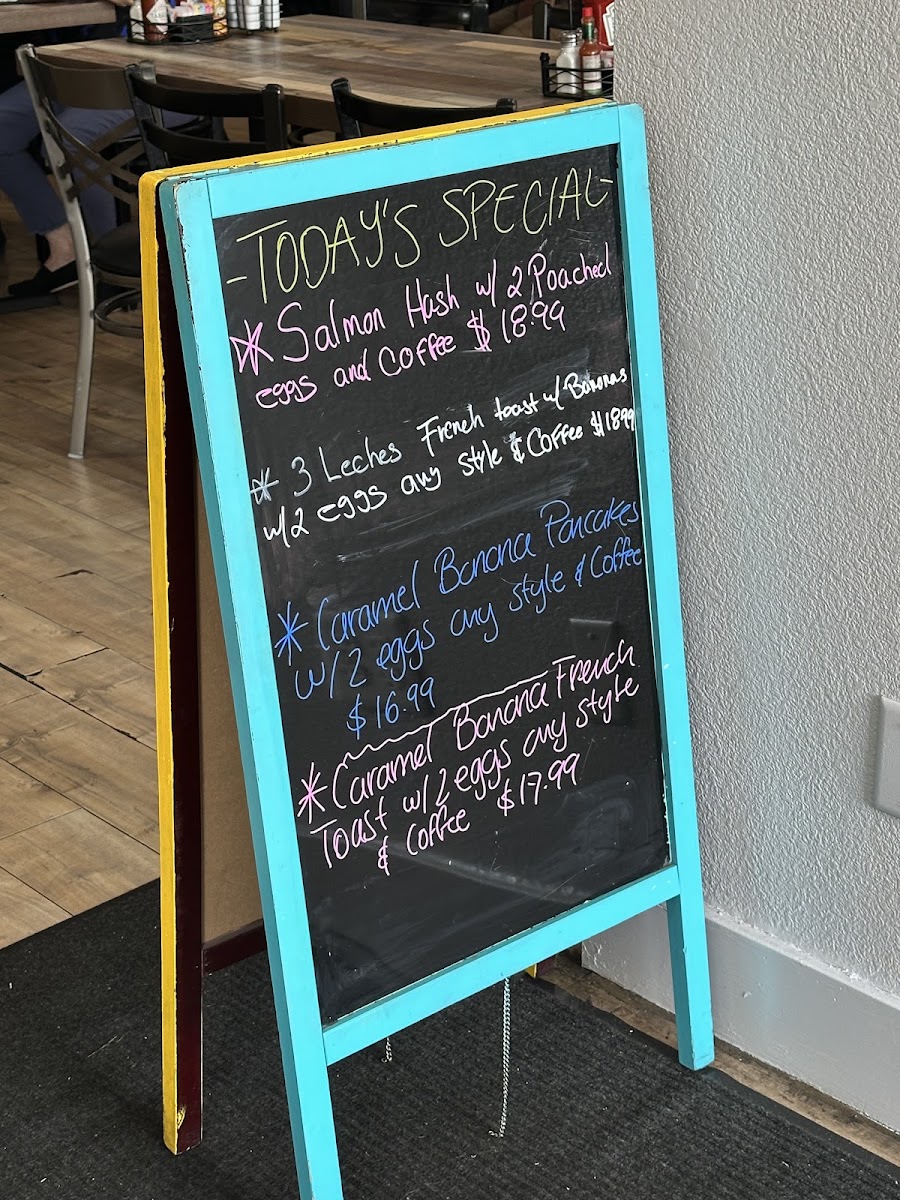 -TODAY'S SPECIAL-
* Salmon Hash w/ 2 Poached
eggs and Coffee $18.99
* 3 Leches French toast w/ Bananas
w/2 eggs any style & Coffee $18.99
* Caramel Banana Pancakes
w/2 eggs any style & Coffee
$16.99
* Caramel Banana French
Toast w/2 eggs any style
& Coffee $17.99